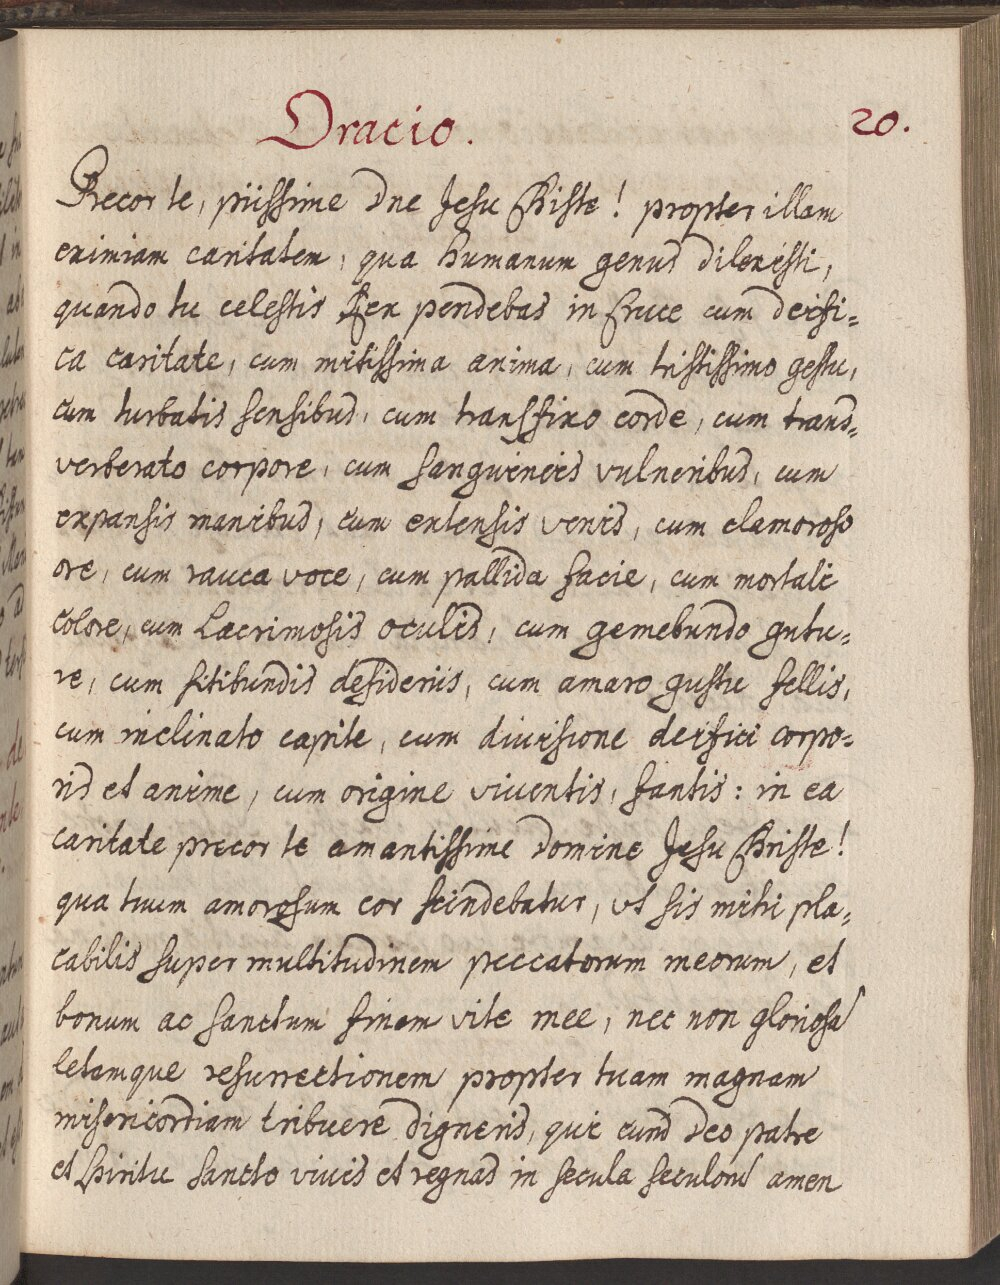 Oracio.
20.
Precor te, piissime Dne Jesu Christe! propter illam
eximiam caritatem, qua humanum genus dilexisti,
quando tu celestis Rex pendebas in Cruce cum deifi=
ca caritate, cum mitissima anima, cum tristissimo gestu,
cum turbatis sensibus, cum transfixo corde, cum trans=
verberato corpore, cum sanguineis vulneribus, cum
expansis manibus, cum extensis venis, cum clamoroso
ore, cum rauca voce, cum pallida facie, cum mortali
colore, cum Lacrimosis oculis, cum gemebundo gutu=
re, cum sitibundis desideriis, cum amaro gustu fellis,
cum inclinato capite, cum divisione deifici corpo=
ris et anime, cum origine viventis, fantis: in ea
caritate precor te amantissime Domine Jesu Christe!
qua tuum amorosum cor scindebatur, ut sis mihi pla=
cabilis super multitudinem peccatorum meorum, et
bonum ac sanctum finem vite mee, nec non gloriosa
letamque resurrectionem propter tuam magnam
misericordiam tribuere digneris, qui cum Deo patre
et Spiritu sancto vivis et regnas in secula seculorum amen